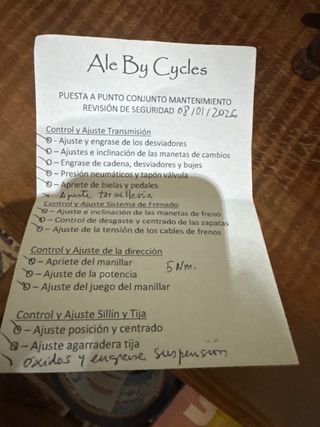 Ale By Cycles
PUESTA A PUNTO CONJUNTO MANTENIMIENTO
REVISIÓN DE SEGURIDAD 08/01/2026
Control y Ajuste Transmisión
O - Ajuste y engrase de los desviadores
O – Ajustes e inclinación de las manetas de cambios
O – Engrase de cadena, desviadores y bujes
O – Presión neumáticos y tapón válvula
O – Apriete de bielas y pedales
Ajuste tornillería
Control y Ajuste Sistema de Frenado
O – Ajuste e inclinación de las manetas de freno
O – Control de desgaste y centrado de las zapatas
O – Ajuste de la tensión de los cables de frenos
Control y Ajuste de la dirección
O – Apriete del manillar 5 Nm.
O – Ajuste de la potencia
O – Ajuste del juego del manillar
Control y Ajuste Sillín y Tija
O – Ajuste posición y centrado
O – Ajuste agarradera tija
óxidos y engrase suspensión